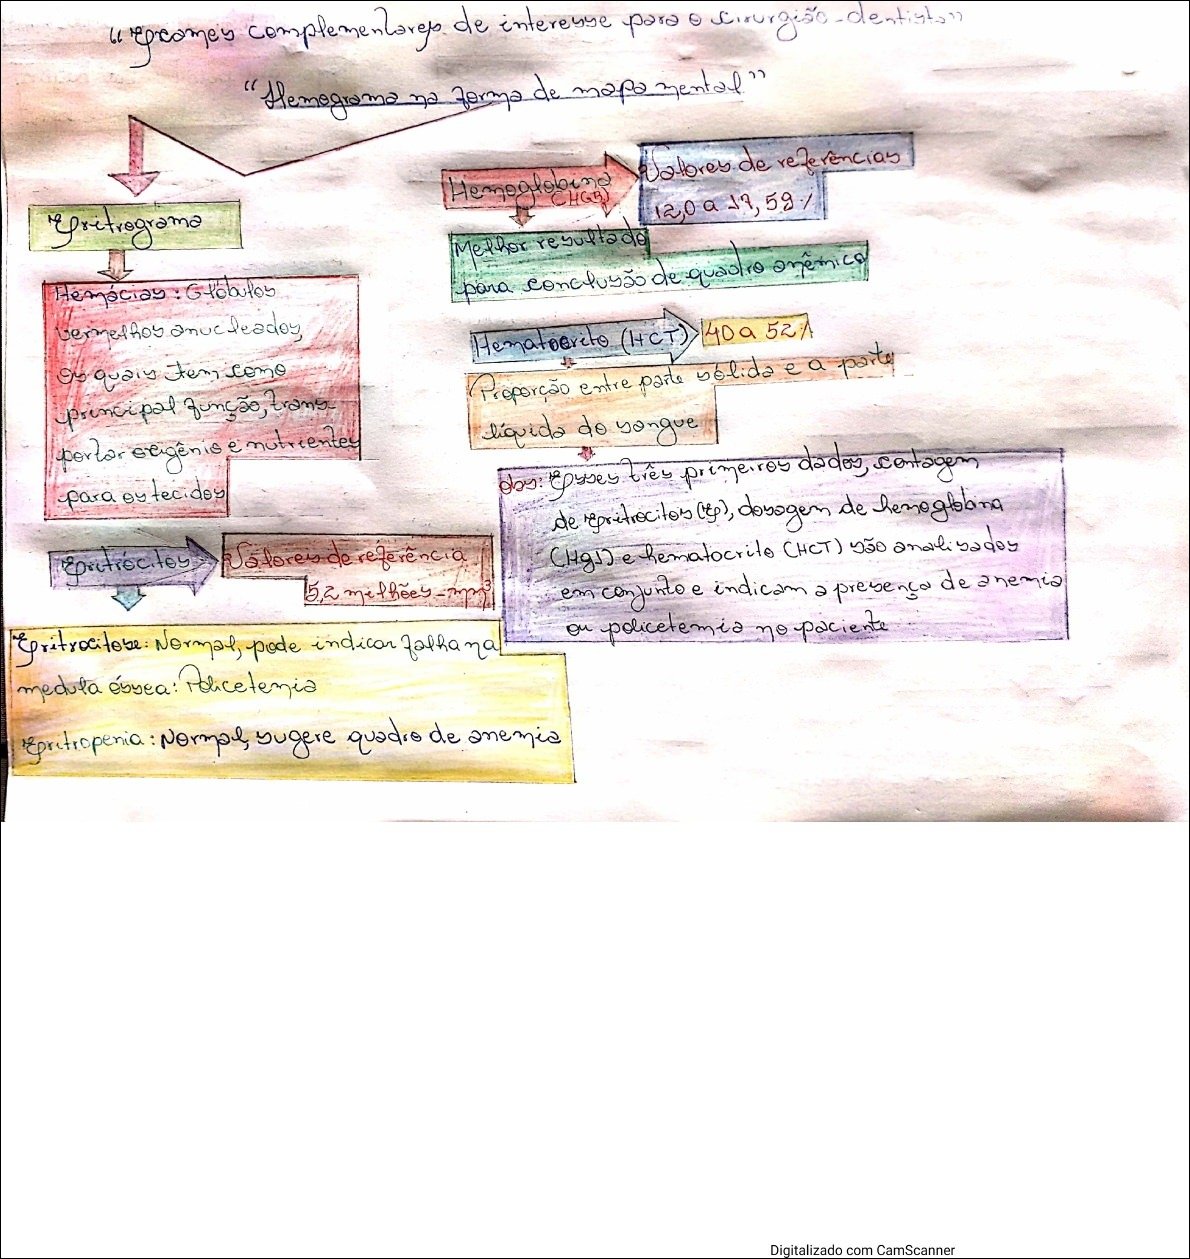 "Exames complementares de interesse para o cirurgião-dentista"
"Hemograma na forma de mapa mental"
Eritrograma
Hemácias: Glóbulos
vermelhos anucleados,
os quais tem como
principal função, trans-
portar oxigênio e nutrientes
para os tecidos
Eritrócitos
Valores de referência
5,2 milhões - mm³
Eritrocitose: Normal, pode indicar falha na
medula óssea: Policetemia
Eritropenia: Normal, sugere quadro de anemia
Hemoglobina
(HGB)
Valores de referências
12,0 a 17,5g%
Melhor resultado
para conclusão de quadro anêmico
Hematocrito (HCT)
40 a 52%
Proporção entre parte sólida e a parte
líquida do sangue
obs: Esses três primeiros dados, contagem
de eritrocitos (), dosagem de hemoglobina
() e hematocrito (HCT) são analisados
em conjunto e indicam a presença de anemia
ou policetemia no paciente
Digitalizado com CamScanner